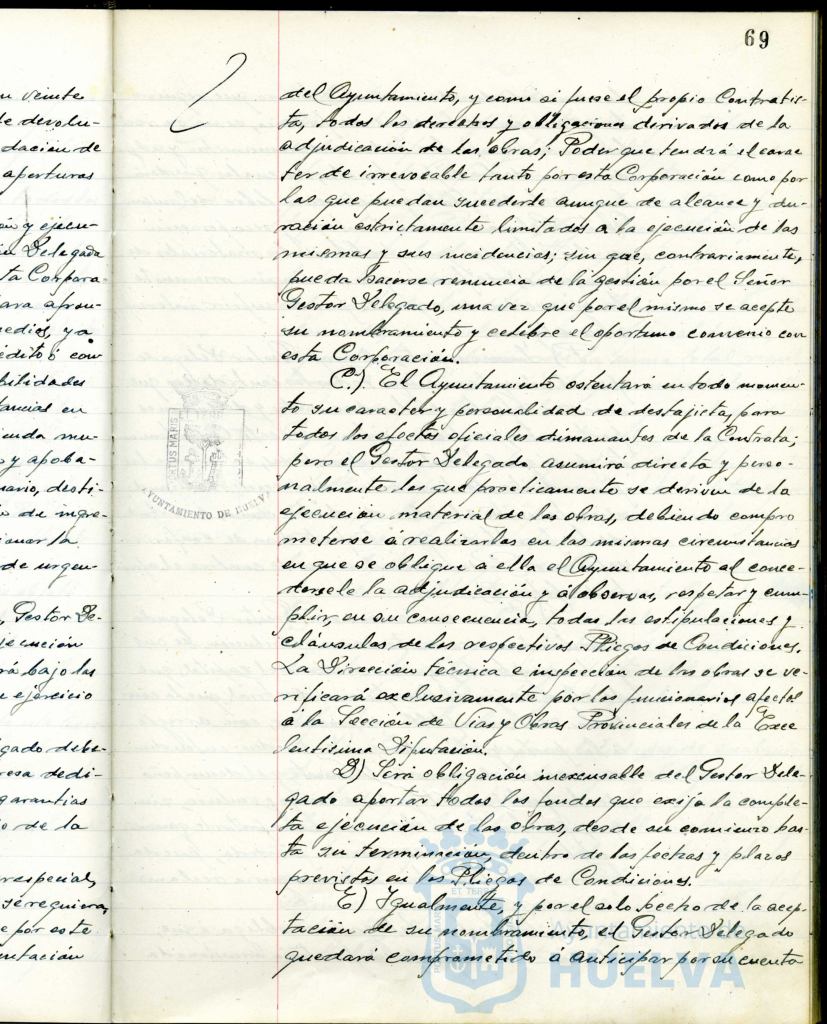 69
n veinte
de devolu-
dación de
aperturas
ón y ejecu-
Delegada
ta Corpora-
ara afron-
medios, ya
édito ó con
bilidades
tancias en
ienda mu-
y aproba-
nario, desti-
de ingre-
ionar la
de urgen-
, Gestor De-
jecución
rá bajo las
ejercicio
gado debe-
resa dedi-
garantias
de la
respecial,
se requiera,
e por este
utación
del Ayuntamiento, y como si fuese el propio Contratis-
ta, todos los derechos y obligaciones derivados de la
adjudicación de las obras; Poder que tendrá el carac
ter de irrevocable tanto por esta Corporación como por
las que puedan sucederle aunque de alcance y du-
ración estrictamente limitados á la ejecución de las
mismas y sus incidencias; sin que, contrariamente,
pueda hacerse renuncia de la gestión por el Señor
Gestor Delegado, una vez que por el mismo se acepte
su nombramiento y celebre el oportuno convenio con
esta Corporación.
C.) El Ayuntamiento ostentará en todo momen-
to su caracter y personalidad de destajista, para
todos los efectos oficiales dimanantes de la Contrata;
pero el Gestor Delegado asumirá directa y perso-
nalmente los que practicamente se deriven de la
ejecución material de las obras, debiendo compro
meterse á realizarlas en las mismas circunstancias
en que se obligue á ella el Ayuntamiento al conce-
dersele la adjudicación y á observar, respetar y cum-
plir, en su consecuencia, todas las estipulaciones y
cláusulas de los respectivos Pliegos de Condiciones.
La Dirección técnica e inspección de las obras se ve-
rificará exclusivamente por los funcionarios afectos
á la Sección de Vias y Obras Provinciales de la Exce
lentisima Diputación.
D) Será obligación inexcusable del Gestor Dele-
gado aportar todos los fondos que exija la comple-
ta ejecución de las obras, desde su comienzo has-
ta su terminación, dentro de las fechas y plazos
previstos en los Pliegos de Condiciones.
E) Igualmente, y por el solo hecho de la acep-
tación de su nombramiento, el Gestor Delegado
quedará comprometido á anticipar por su cuenta
PORTUS MARIS
AYUNTAMIENTO DE HUELVA
ET TERR
PORTUS MARIS
Ayuntamiento de
HUELVA